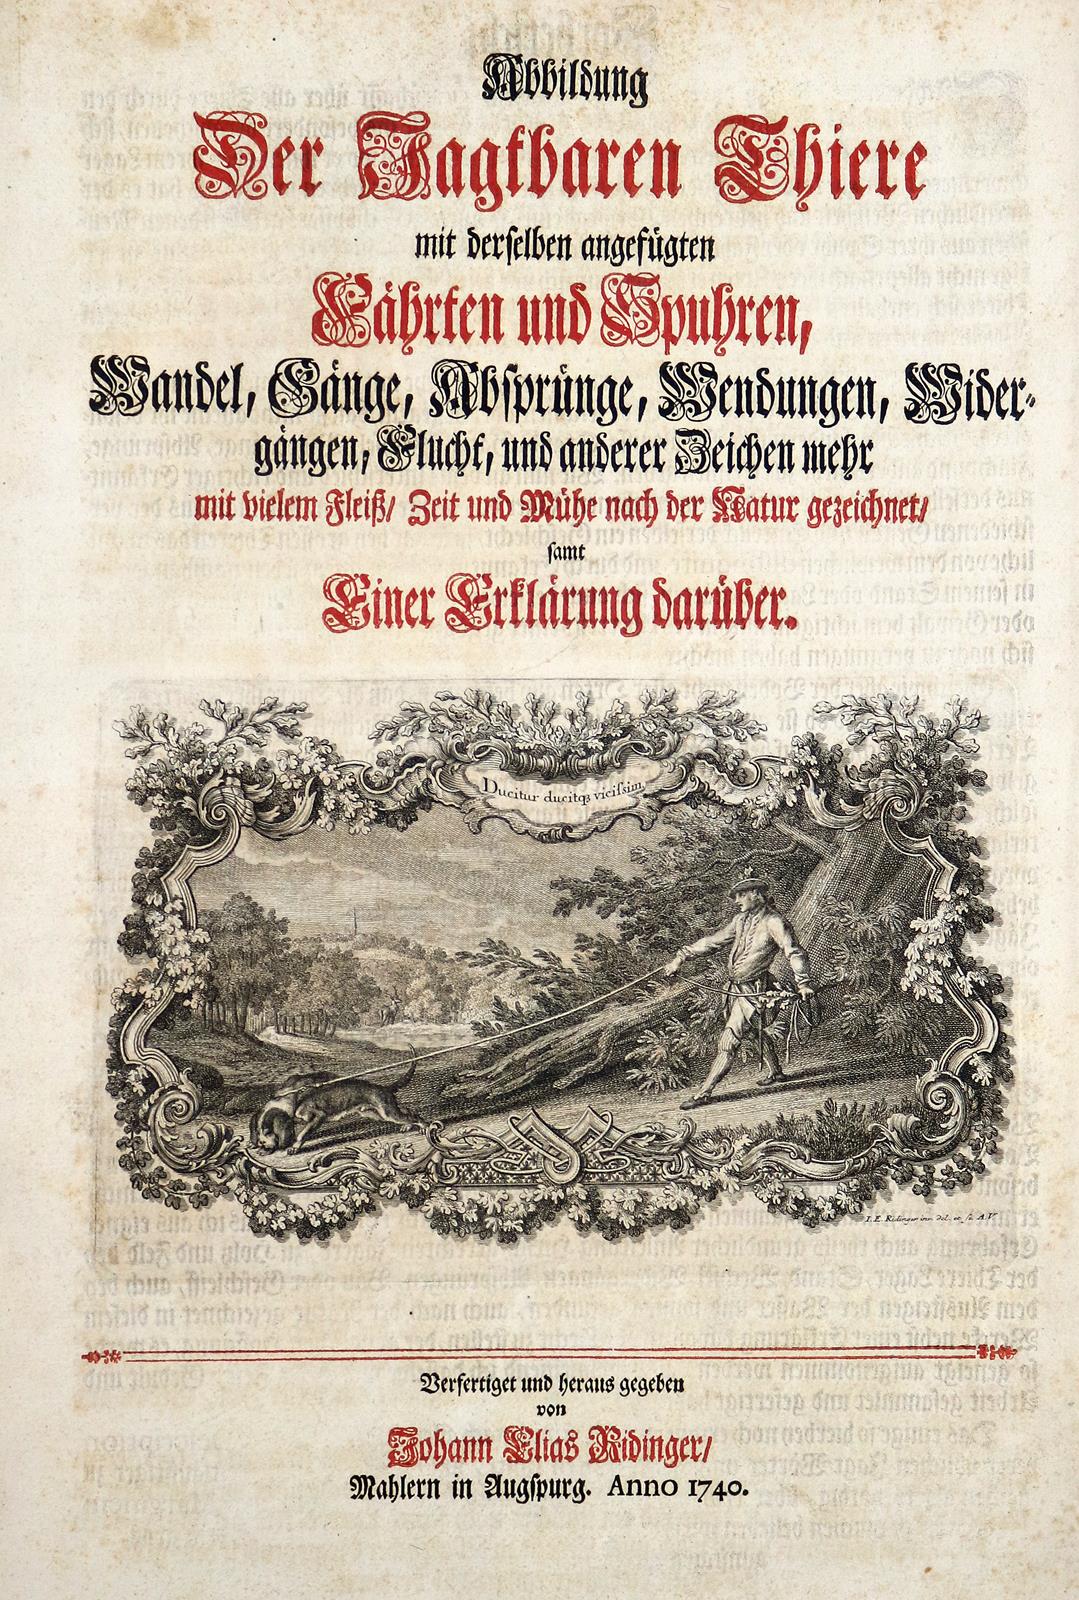 Abbildung
Der Jagtbaren Thiere
mit derſelben angefügten
Fährten und Spuhren,
Wandel, Gänge, Abſprünge, Wendungen, Wider-
gängen, Flucht, und anderer Zeichen mehr
mit vielem Fleiß/ Zeit und Mühe nach der Natur gezeichnet/
ſamt
Einer Erklärung darüber.
Ducitur ducitqȝ viciſsim.
I. E. Ridinger inv. del. et ſc. A.V.
Verfertiget und heraus gegeben
von
Johann Elias Ridinger/
Mahlern in Augſpurg. Anno 1740.